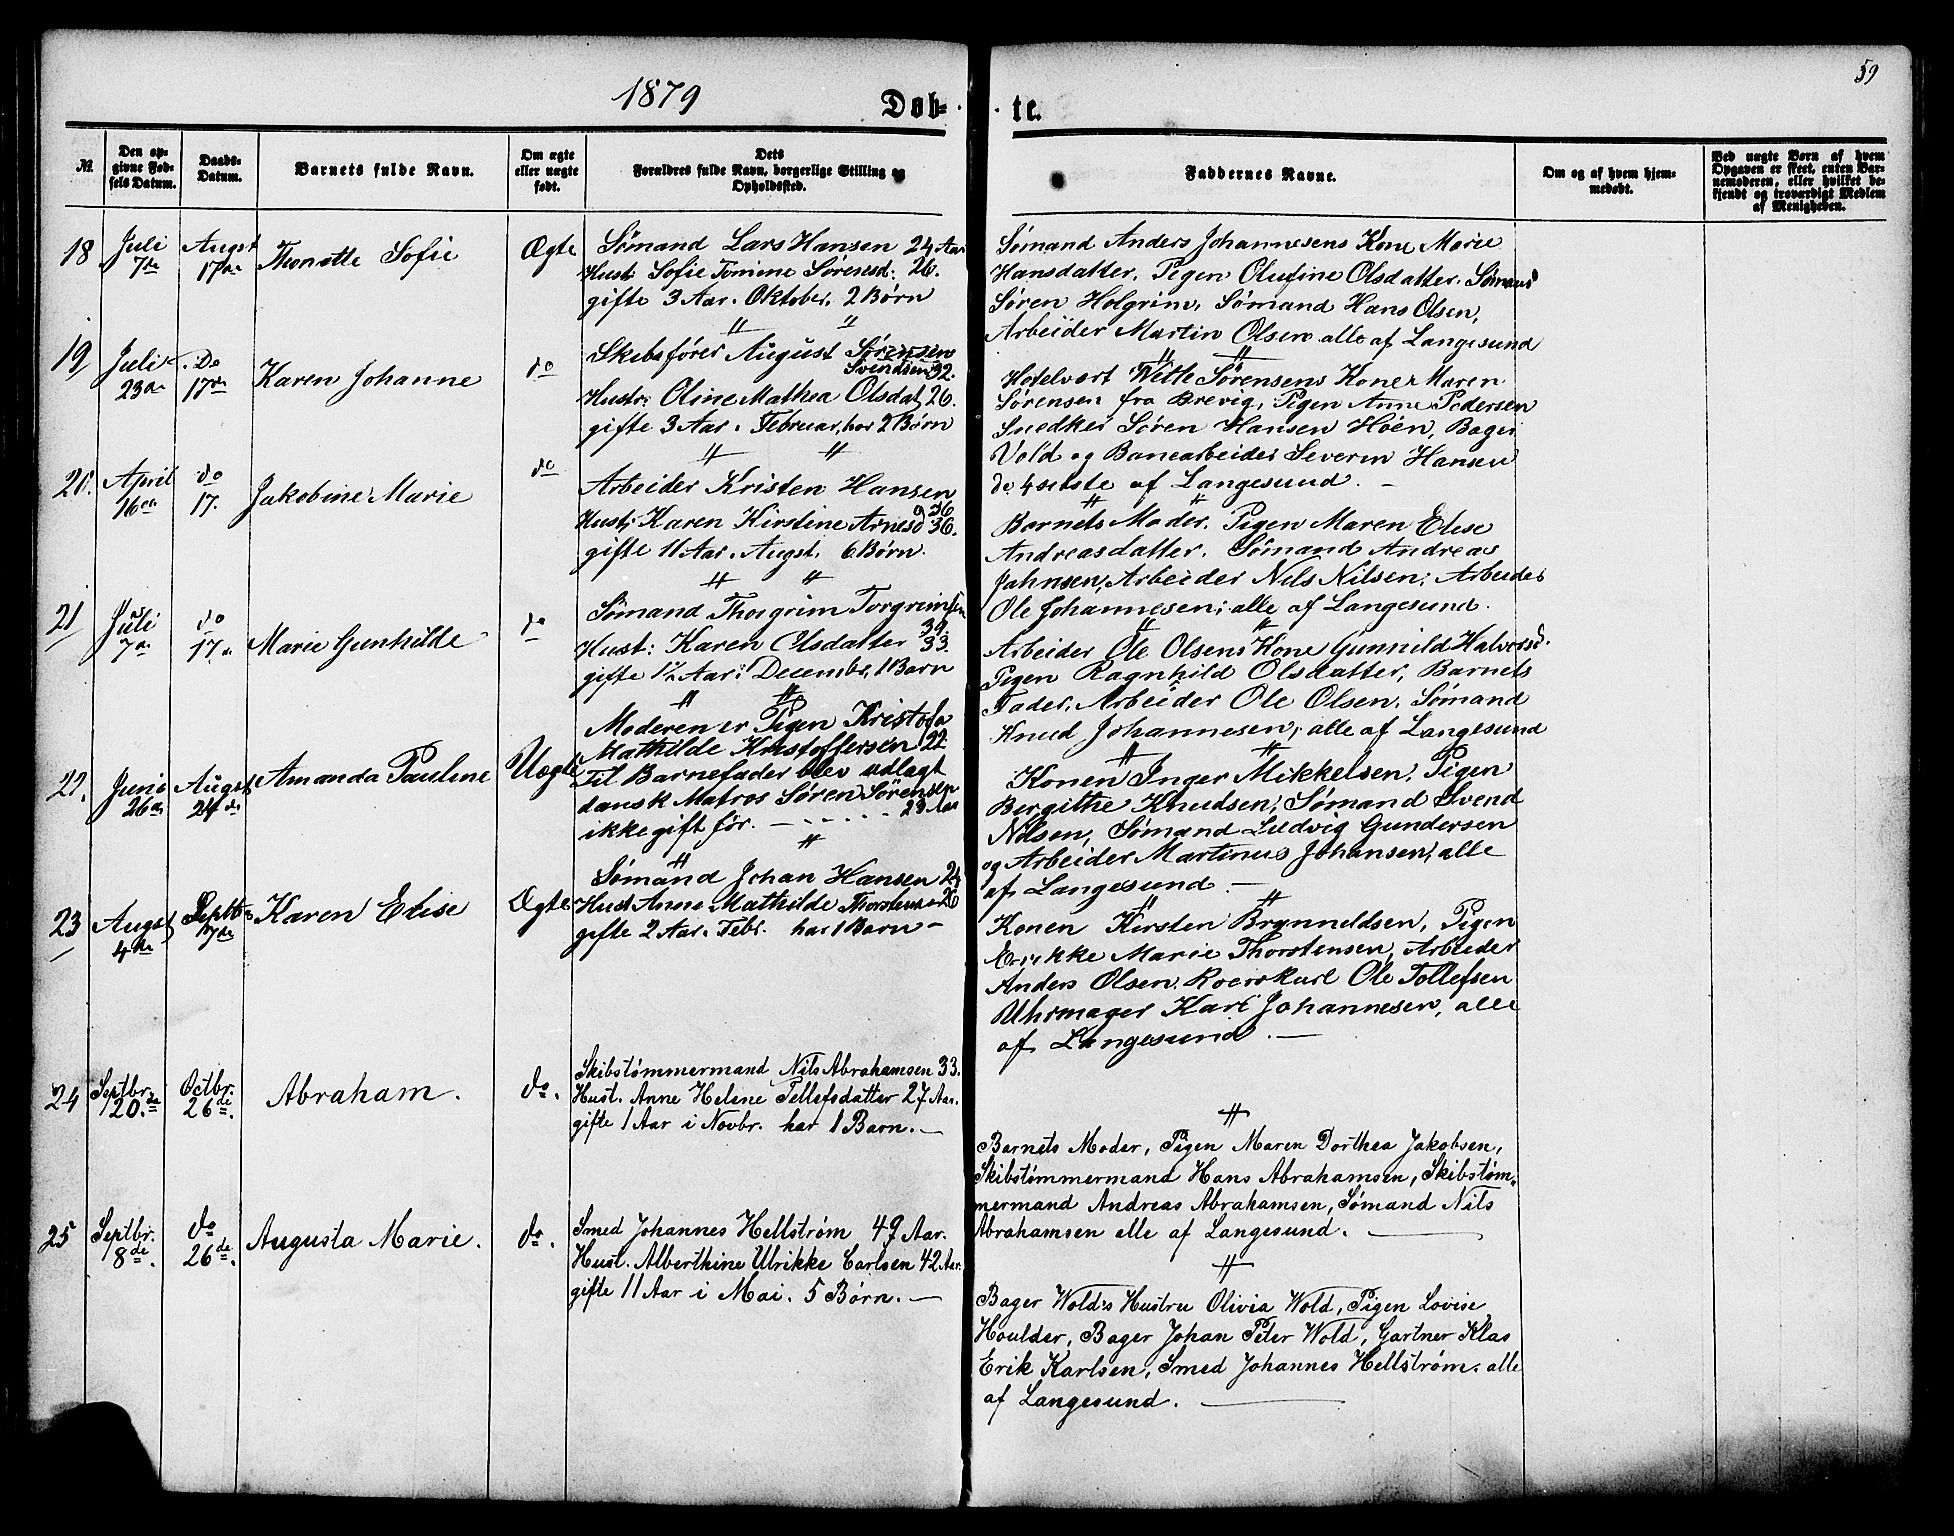 59
1879
Døb- te.
№
Den op-
givne Fød-
sels Datum.
Daabs-
Datum.
Barnets fulde Navn.
Om ægte
eller uægte
født.
Dets
Forældres fulde Navn, borgerlige Stilling og
Opholdssted.
Faddernes Navne.
Om og af hvem hjem-
medøbt.
Ved uægte Børn af hvem
Opgaven er skeet, enten Bar-
nemoderen, eller hvilket be-
kjendt og troværdigt Medlem
af Menigheden.
18
Juli
7de
Augst
17de
Thonette Sofie
Ægte
Sømand Lars Hansen 24 Aar
Hust: Sofie Tomine Sørensd: 26.
gifte 3 Aar. Oktober. 2 Børn
Sømand Anders Johannesens Kone Marie
Hansdatter, Pigen Olufine Olsdatter, Sømand
Søren Holgrim, Sømand Hans Olsen,
Arbeider Martin Olsen alle af Langesund
19
Juli
23de
Do
17de
Karen Johanne
do
Skibsfører August Sørensen
Svendsen 32.
Hustr: Oline Mathea Olsdat 26.
gifte 3 Aar. Februar, har 2 Børn
Hotelvært Wette Sørensens Kone Maren
Sørensen fra Brevig, Pigen Anne Pedersen
Snedker Søren Hansen Höen, Bager
Vold og Banearbeider Severin Hansen
de 4 sidste af Langesund. -
20.
April
16de
do
17.
Jakobine Marie
do
Arbeider Kristen Hansen
36
Hust; Karen Kirstine Arnesd 36.
gifte 11 Aar. Augst. 6 Børn.
Barnets Moder. Pigen Maren Elise
Andreasdatter. Sømand Andreas
Jahnsen, Arbeider Nils Nilsen; Arbeider
Ole Johannesen; alle af Langesund.
21
Juli
7de
do
17de
Marie Gunhilde
do
Sømand Thorgrim Torgrimsen
39.
Hust: Karen Olsdatter 33
gifte 1½ Aar: December, 1 Barn
Arbeider Ole Olsens Kone Gunnild Halvorsd.
Pigen Ragnhild Olsdatter, Barnets
Fader, Arbeider Ole Olsen, Sømand
Knud Johannesen; alle af Langesund
22.
Juni
26de
Augst
24de
Amanda Pauline
Uægte
Moderen er Pigen Kristofa
Mathilde Kristoffersen 22
Til Barnefader blev udlagt
dansk Matros Søren Sørensen
28 Aar
ikke gift før. -
Konen Inger Mikkelsen, Pigen
Bergithe Knudsen, Sømand Svend
Nilsen, Sømand Ludvig Gundersen
og Arbeider Martinus Johansen; alle
af Langesund. -
23
Augst
4de
Septbr
7de
Karen Elise
Ægte
Sømand Johan Hansen 24
Hust Anne Mathilde Thorstens 26
gifte 2 Aar. Febr. har 1 Barn -
Konen Kirsten Brynneldsen, Pigen
Marie Thorstensen, Arbeider
Anders Olsen, Roerskarl Ole Tollefsen
Uhrmager Karl Johannesen, alle
af Langesund. -
24
Septbr.
20.de
Octbr.
26de.
Abraham.
do.
Skibstømmermand Nils Abrahamsen 33.
Hust. Anne Helene Tellefsdatter 27 Aar.
gifte 1 Aar i Novbr. har 1 Barn. -
Barnets Moder, Pigen Maren Dorthea Jakobsen,
Skibstømmermand Hans Abrahamsen, Skibstøm-
mermand Andreas Abrahamsen, Sømand Nils
Abrahamsen alle af Langesund.
25
Septbr.
8de.
do
26de.
Augusta Marie.
do.
Smed Johannes Hellstrøm 49 Aar.
Hust. Alberthine Ulrikke Carlsen 42 Aar.
gifte 11 Aar i Mai. 5 Børn. -
Bager Wold's Hustru Olivia Wold, Pigen Lovise
Houlder, Bager Johan Peter Wold, Gartner Klas
Erik Karlsen, Smed Johannes Hellstrøm. alle
af Langesund.